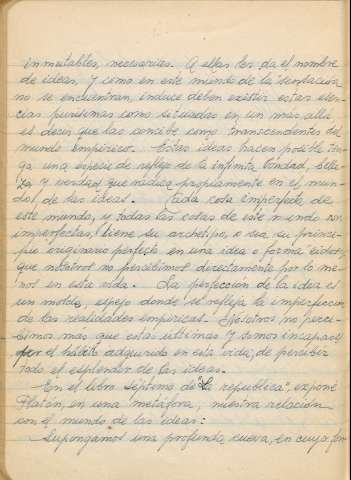 inmutables, necesarias. A ellas les da el nombre
de ideas, y como en este mundo de la sensación
no se encuentran, induce deben existir estas esen-
cias purísimas como situadas en un mas allá,
es decir que las concibe como transcendentes del
mundo empírico. Estas ideas hacen posible ten-
ga una especie de reflejo de la infinita bondad, belle-
za y verdad que radica propiamente en el mun-
do de las ideas. Cada cosa imperfecta de
este mundo, y todas las cosas de este mundo son
imperfectas, tiene su archetipo, o sea su princi-
pio originario perfecto en una idea o forma "eidos",
que nosotros no percibimos directamente por lo me-
nos en esta vida. La perfección de la idea es
un molde, espejo donde se refleja la imperfección
de las realidades empíricas. Nosotros no perci-
bimos mas que estas últimas y somos incapaces
por el hábito adquirido en esta vida, de percibir
todo el esplendor de las ideas.
En el libro séptimo de "La república", expone
Platón, en una metáfora, nuestra relación
con el mundo de las ideas:
Supongamos una profunda cueva, en cuyo fon-